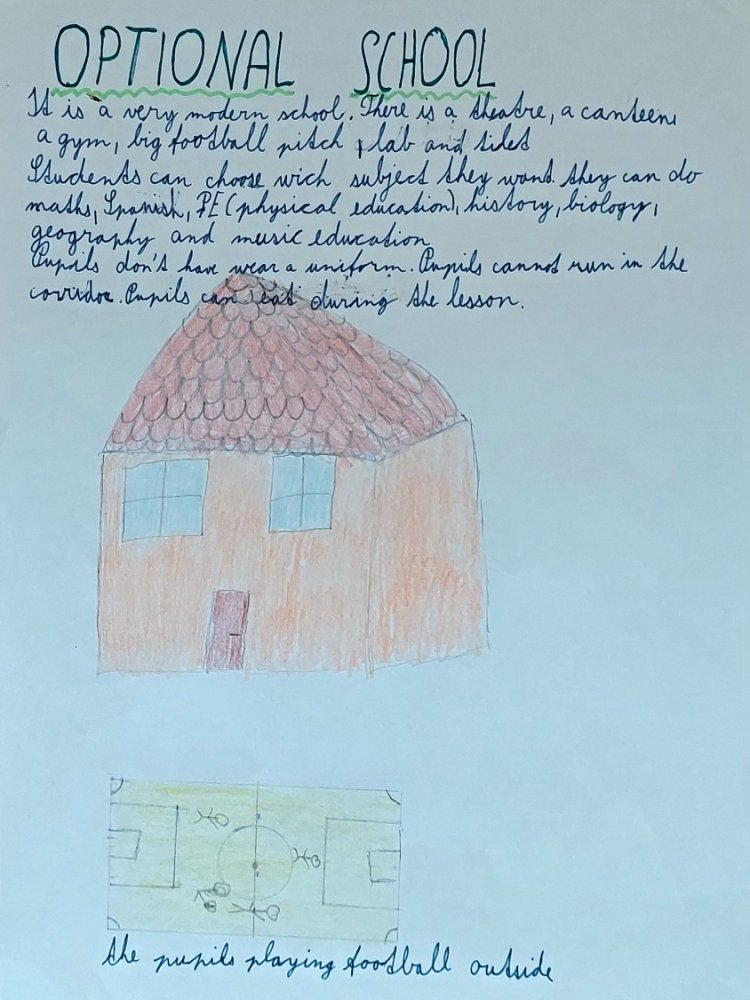 OPTIONAL SCHOOL
It is a very modern school. There is a theatre, a canteen,
a gym, big football pitch, lab and
Students can choose wich subject they want they can do
maths, Spanish, PE (physical education), history, biology,
geography and music education
Pupils don't have wear a uniform. Pupils cannot run in the
corridor. Pupils can eat during the lesson.
the pupils playing football outside